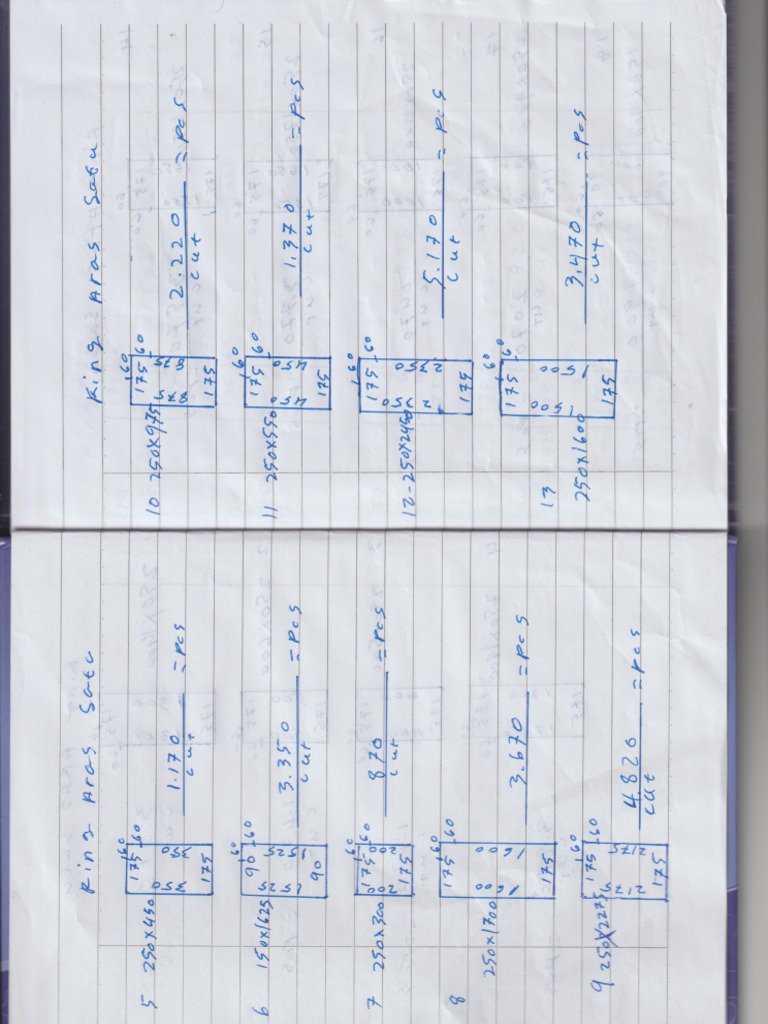 Ring Aras Satu
5 250x450
60
175 60
350 350
175
1.170 = Pcs
cut
6 150x1625
60
90 60
1525 1525
90
3.350 = Pcs
cut
7 250x300
60
175 60
200 200
175
870 = Pcs
cut
8 250x1700
60
175 60
1600 1600
175
3.670 = Pcs
cut
9 250x2275
60
175 60
2175 2175
175
4.820 = Pcs
cut
Ring Aras Satu
10 250x975
60
175 60
875 875
175
2.220 = Pcs
cut
11 250x550
60
175 60
450 450
175
1.370 = Pcs
cut
12-250x2450
60
175 60
2350 2350
175
5.170 = Pcs
cut
13 250x1600
60
175 60
1500 1500
175
3.470 = Pcs
cut